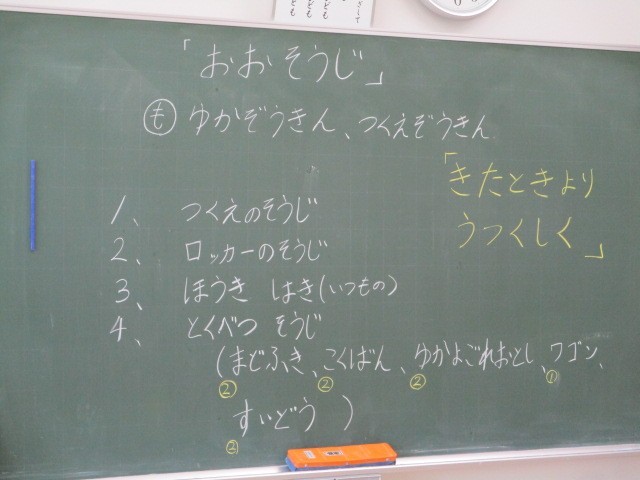 「おおそうじ」
も ゆかぞうきん、つくえぞうきん
「きたときより
うつくしく」
1、 つくえのそうじ
2、 ロッカーのそうじ
3、 ほうき はき(いつもの)
4、 とくべつ そうじ
(まどふき、こくばん、ゆかよごれおとし、ワゴン、
② ② ② ①
すいどう)
②